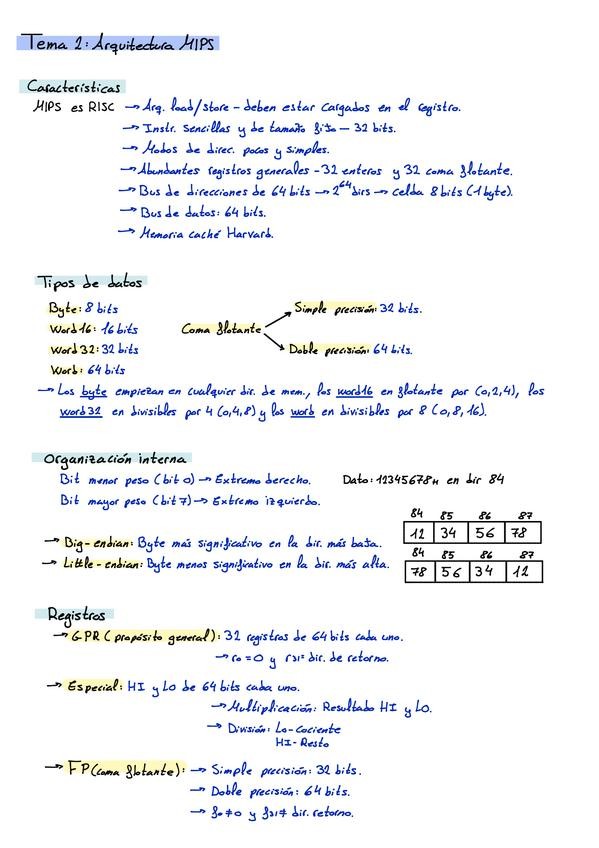 Tema 2: Arquitectura MIPS
Características
MIPS es RISC → Arq. load/store - deben estar cargados en el registro.
→ Instr. sencillas y de tamaño fijo — 32 bits.
→ Modos de direc. pocos y simples.
→ Abundantes registros generales - 32 enteros y 32 coma flotante.
→ Bus de direcciones de 64 bits → 2^64 dirs → celda 8 bits (1 byte).
→ Bus de datos: 64 bits.
→ Memoria caché Harvard.
Tipos de datos
Byte: 8 bits
Word16: 16 bits
Word32: 32 bits
Word: 64 bits
Coma flotante
Simple precisión: 32 bits.
Doble precisión: 64 bits.
→ Los byte empiezan en cualquier dir. de mem., los word16 en flotante por (0,2,4), los
word32 en divisibles por 4 (0,4,8) y los word en divisibles por 8 (0,8,16).
Organización interna
Bit menor peso (bit 0) → Extremo derecho.
Bit mayor peso (bit 7) → Extremo izquierdo.
Dato: 12345678H en dir 84
→ Big-endian: Byte más significativo en la dir. más baja.
84 85 86 87
12 34 56 78
→ Little-endian: Byte menos significativo en la dir. más alta.
84 85 86 87
78 56 34 12
Registros
→ GPR (propósito general): 32 registros de 64 bits cada uno.
→ r0 = 0 y r31 = dir. de retorno.
→ Especial: HI y LO de 64 bits cada uno.
→ Multiplicación: Resultado HI y LO.
→ División: Lo-Cociente
HI-Resto
→ FP (coma flotante): → Simple precisión: 32 bits.
→ Doble precisión: 64 bits.
→ f0 ≠ 0 y f31 ≠ dir. retorno.